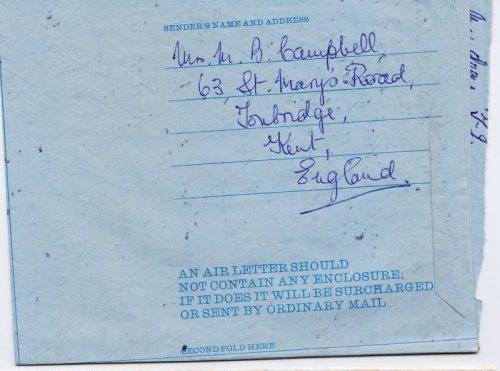 SENDER'S NAME AND ADDRESS
Mrs M. B. Campbell,
63, St. Mary's Road,
Tonbridge,
Kent,
England.
AN AIR LETTER SHOULD
NOT CONTAIN ANY ENCLOSURE;
IF IT DOES IT WILL BE SURCHARGED
OR SENT BY ORDINARY MAIL
SECOND FOLD HERE